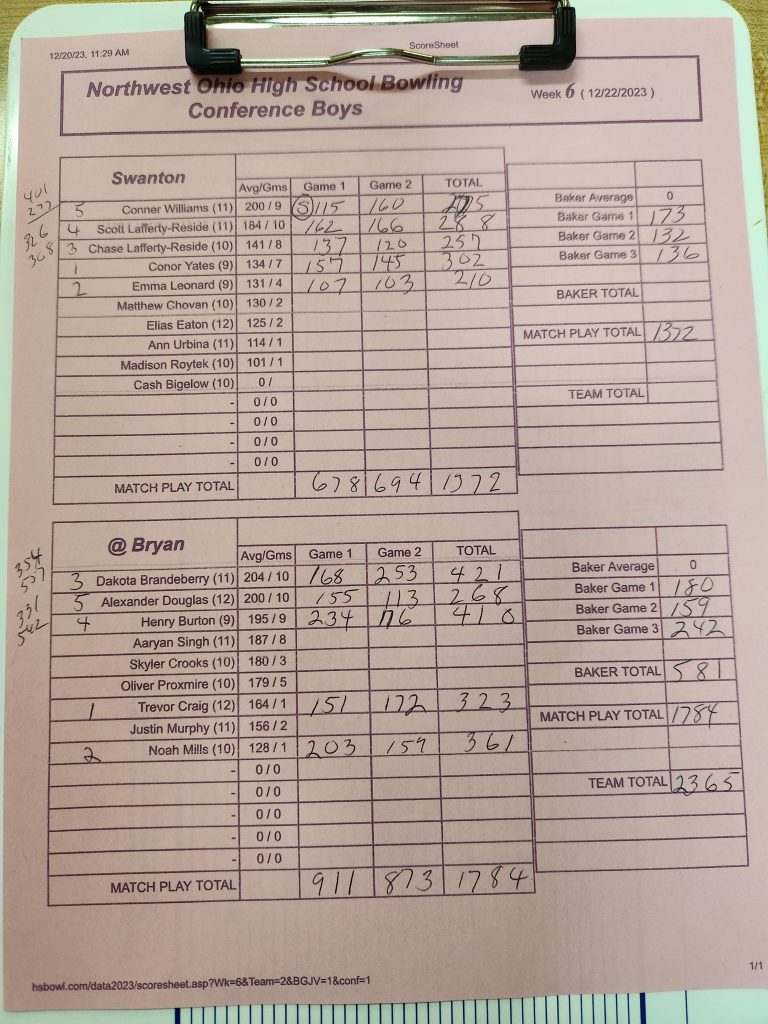 12/20/23, 11:29 AM ScoreSheet
Northwest Ohio High School Bowling
Conference Boys
Week 6 ( 12/22/2023 )
401
277
326
368
Swanton Avg/Gms Game 1 Game 2 TOTAL
5 Conner Williams (11) 200 / 9 S 115 160 275
4 Scott Lafferty-Reside (11) 184 / 10 162 166 288
3 Chase Lafferty-Reside (10) 141 / 8 137 120 257
1 Conor Yates (9) 134 / 7 157 145 302
2 Emma Leonard (9) 131 / 4 107 103 210
Matthew Chovan (10) 130 / 2
Elias Eaton (12) 125 / 2
Ann Urbina (11) 114 / 1
Madison Roytek (10) 101 / 1
Cash Bigelow (10) 0 /
- 0 / 0
- 0 / 0
- 0 / 0
- 0 / 0
MATCH PLAY TOTAL 678 694 1372
Baker Average 0
Baker Game 1 173
Baker Game 2 132
Baker Game 3 136
BAKER TOTAL
MATCH PLAY TOTAL 1372
TEAM TOTAL
354
331
542
@ Bryan Avg/Gms Game 1 Game 2 TOTAL
3 Dakota Brandeberry (11) 204 / 10 168 253 421
5 Alexander Douglas (12) 200 / 10 155 113 268
4 Henry Burton (9) 195 / 9 234 176 410
Aaryan Singh (11) 187 / 8
Skyler Crooks (10) 180 / 3
Oliver Proxmire (10) 179 / 5
1 Trevor Craig (12) 164 / 1 151 172 323
Justin Murphy (11) 156 / 2
2 Noah Mills (10) 128 / 1 203 159 361
- 0 / 0
- 0 / 0
- 0 / 0
- 0 / 0
- 0 / 0
MATCH PLAY TOTAL 911 873 1784
Baker Average 0
Baker Game 1 180
Baker Game 2 159
Baker Game 3 242
BAKER TOTAL 581
MATCH PLAY TOTAL 1784
TEAM TOTAL 2365
hsbowl.com/data2023/scoresheet.asp?Wk=6&Team=2&BGJV=1&conf=1
1/1